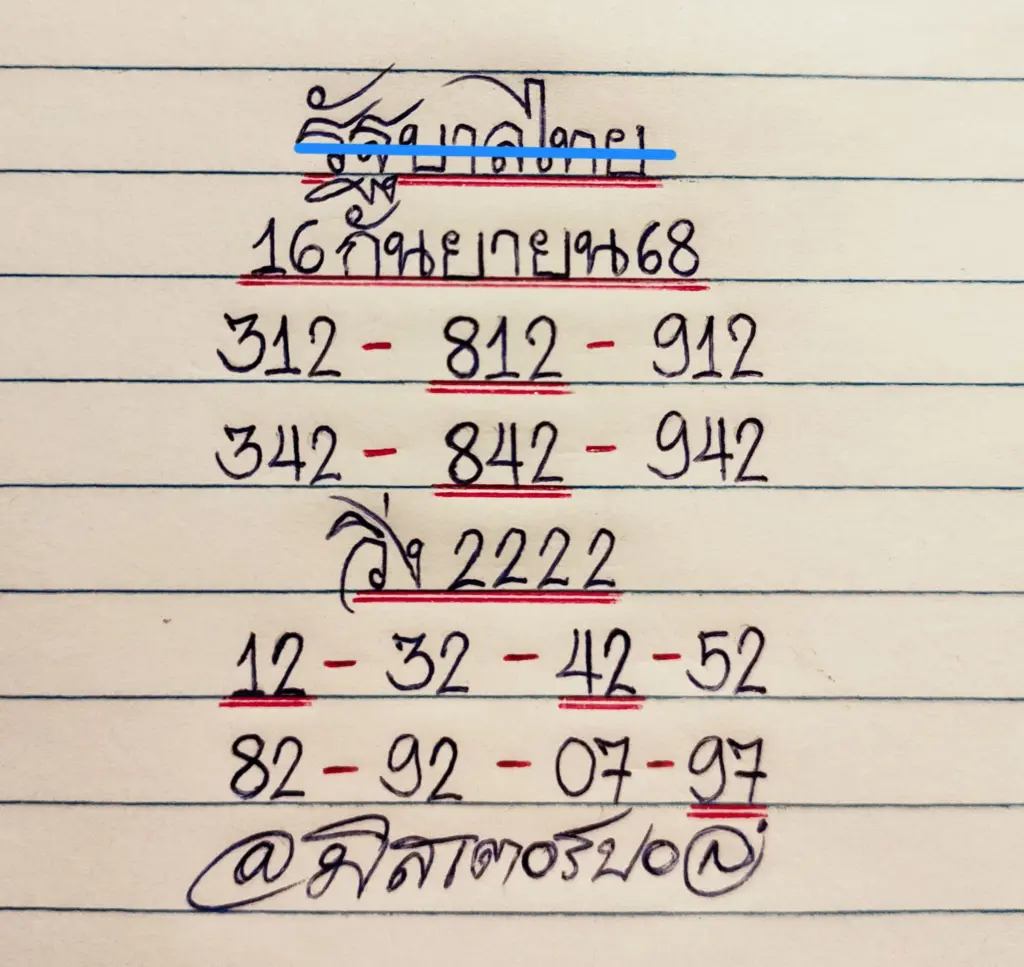 รัฐบาลไทย
16 กันยายน 68
312 - 812 - 912
342 - 842 - 942
วิ่ง 2222
12 - 32 - 42 - 52
82 - 92 - 07 - 97
@มิสเตอร์บอล